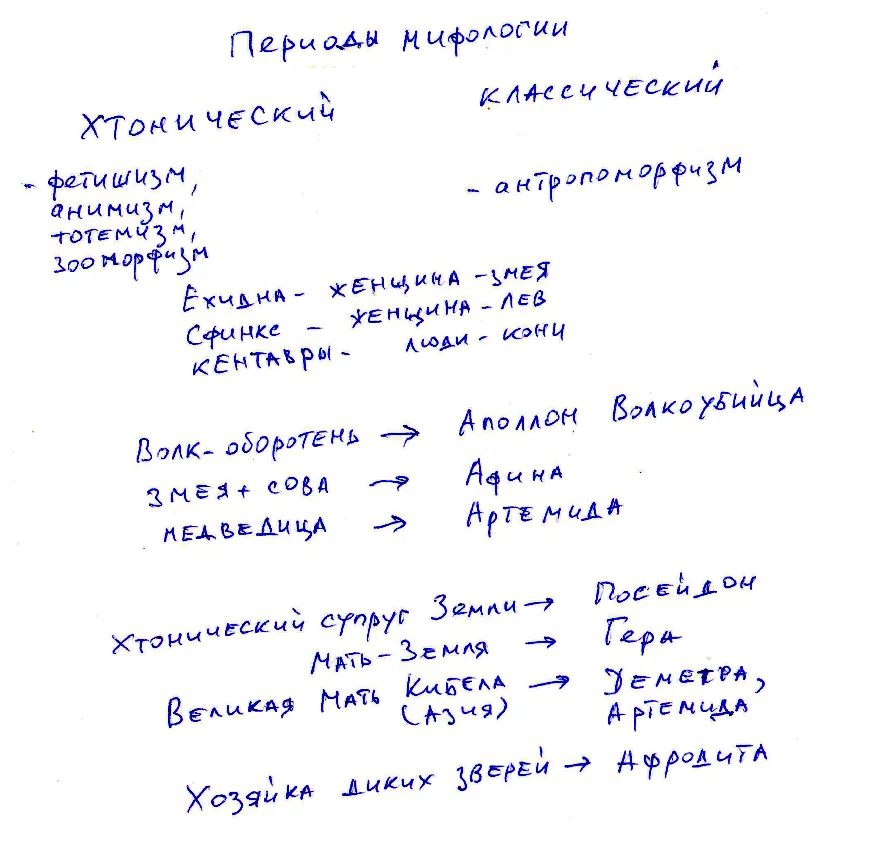 Периоды мифологии
ХТОНИЧЕСКИЙ КЛАССИЧЕСКИЙ
- фетишизм, - антропоморфизм
анимизм,
тотемизм,
зооморфизм
Ехидна - женщина - змея
Сфинкс - женщина - лев
Кентавры - люди - кони
Волк-оборотень → Аполлон Волкоубийца
Змея + сова → Афина
Медведица → Артемида
Хтонический супруг Земли → Посейдон
Мать-Земля → Гера
Великая Мать Кибела → Деметра,
(Азия) Артемида
Хозяйка диких зверей → Афродита